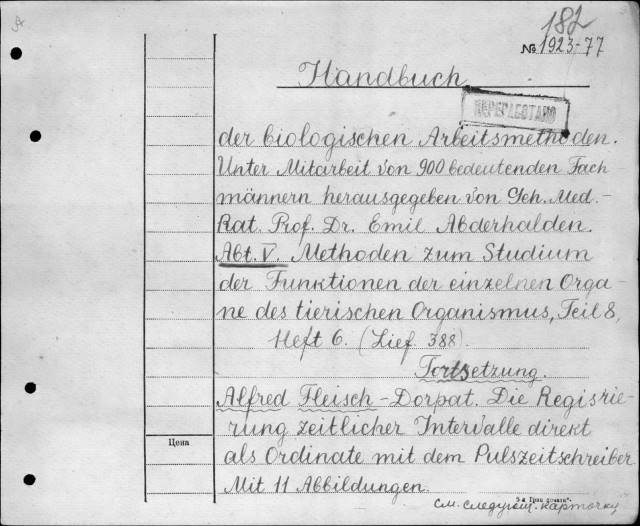 182
№ 1923-77
Handbuch
ПЕРЕРАБОТАНО
der biologischen Arbeitsmethoden.
Unter Mitarbeit von 900 bedeutenden Fach-
männern herausgegeben von Geh. Med.-
Rat. Prof. Dr. Emil Abderhalden.
Abt. V. Methoden zum Studium
der Funktionen der einzelnen Orga-
ne des tierischen Organismus, Teil 8,
Heft 6. (Lief. 388)
Fortsetzung.
Alfred Fleisch-Dorpat. Die Registrie-
rung zeitlicher Intervalle direkt
Цена
als Ordinate mit dem Pulszeitschreiber
Mit 11 Abbildungen.
см. следующ. карточку